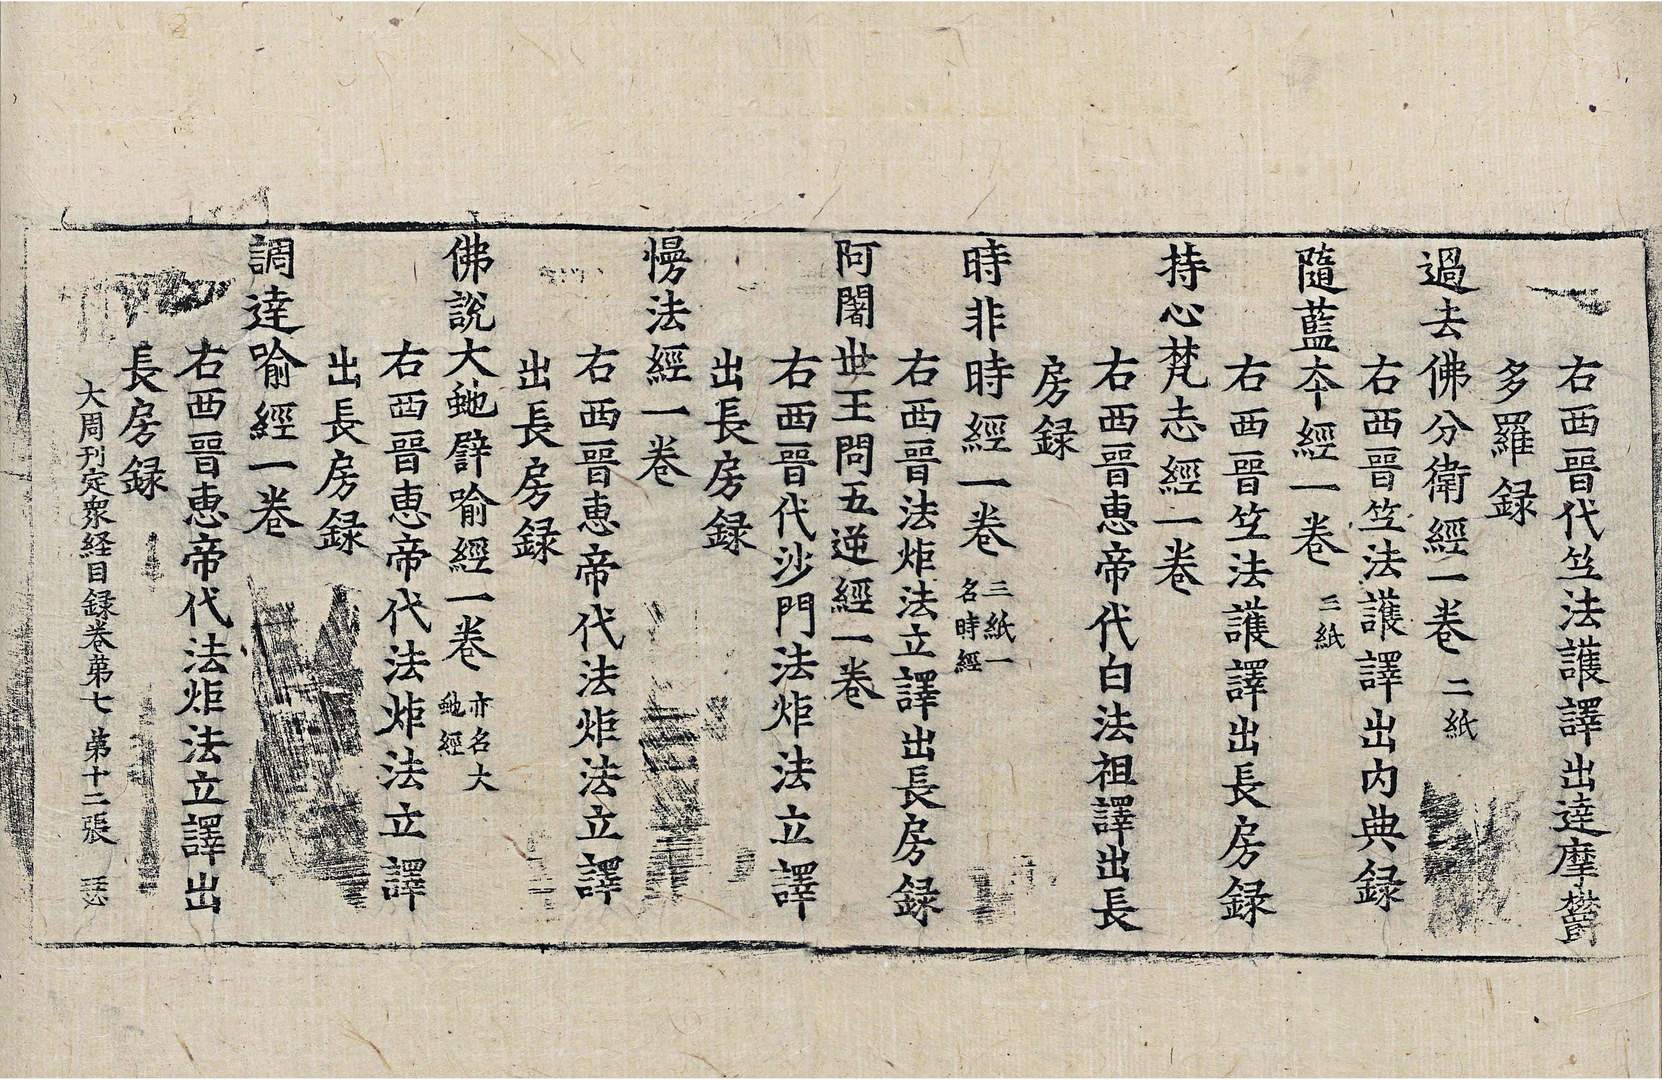 右西晉代竺法護譯出達摩欝
多羅録
過去佛分衛經一卷 二紙
右西晉竺法護譯出內典録
隨藍夲經一卷 二紙
右西晉竺法護譯出長房録
持心梵志經一卷
右西晉恵帝代白法祖譯出長
房録
時非時經一卷 三紙一
名時經
右西晉法炬法立譯出長房録
阿闍世王問五逆經一卷
右西晉代沙門法炬法立譯
出長房録
慢法經一卷
右西晉恵帝代法炬法立譯
出長房録
佛說大虵譬喻經一卷 亦名大
虵經
右西晉恵帝代法炬法立譯
出長房録
調達喻經一卷
右西晉恵帝代法炬法立譯出
長房録
大周刊定衆経目録卷苐七 苐十二張 瑟